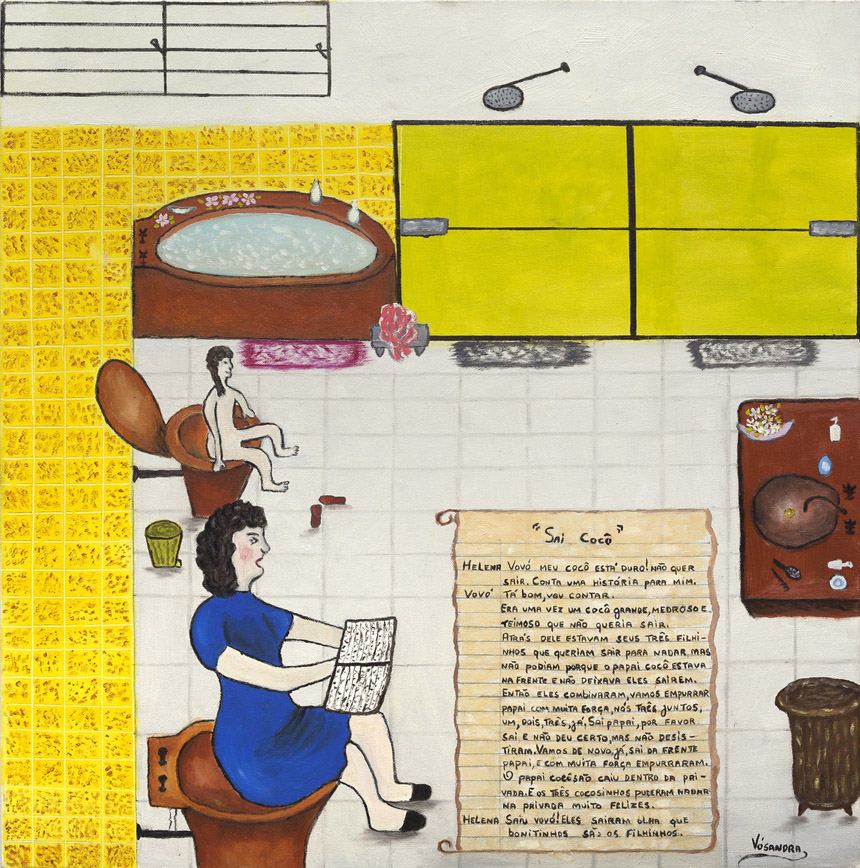 "Sai Cocô"
HELENA VOVÓ MEU COCÔ ESTÁ DURO! NÃO QUER
SAIR. CONTA UMA HISTÓRIA PARA MIM.
VOVÓ TÁ BOM, VOU CONTAR.
ERA UMA VEZ UM COCÔ GRANDE, MEDROSO E
TEIMOSO QUE NÃO QUERIA SAIR.
ATRÁS DELE ESTAVAM SEUS TRÊS FILHI-
NHOS QUE QUERIAM SAIR PARA NADAR, MAS
NÃO PODIAM PORQUE O PAPAI COCÔ ESTAVA
NA FRENTE E NÃO DEIXAVA ELES SAIREM.
ENTÃO ELES COMBINARAM, VAMOS EMPURRAR
PAPAI COM MUITA FORÇA, NÓS TRÊS JUNTOS,
UM, DOIS, TRÊS, JÁ, SAI PAPAI, POR FAVOR
SAI E NÃO DEU CERTO, MAS NÃO DESIS-
TIRAM. VAMOS DE NOVO, JÁ, SAI DA FRENTE
PAPAI, E COM MUITA FORÇA EMPURRARAM.
O PAPAI COCOSÃO CAIU DENTRO DA PRI-
VADA. E OS TRÊS COCOSINHOS PUDERAM NADAR
NA PRIVADA MUITO FELIZES.
HELENA SAIU VOVÓ! ELES SAIRAM OLHA QUE
BONITINHOS SÃO OS FILHINHOS.
VÓSANDRA